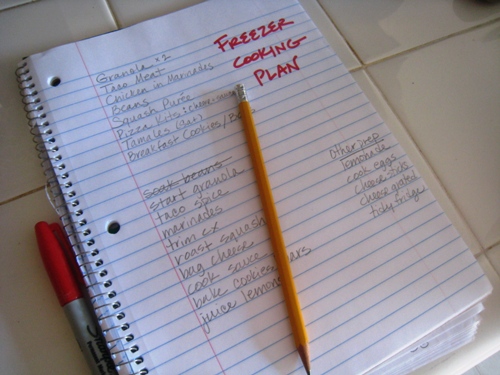 FREEZER
COOKING
PLAN
Granola x2
Taco Meat
Chicken in Marinades
Beans
Squash Purée
Pizza Kits: cheese
Tamales
Breakfast Cookies/
soak beans
start granola
taco spice
marinades
trim ex
roast squash
bag cheese
cook sauce
bake cookies
juice lemons
Other prep
lemonade
cook eggs
cheese sticks
cheese grated
tidy fridge